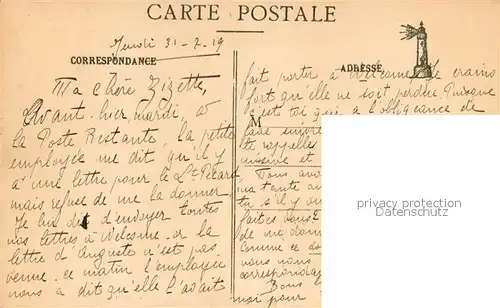 CARTE POSTALE
Jeudi 31-7-19
CORRESPONDANCE
ADRESSE
Ma chère Zizette,
Avant-hier, mardi, à
la Poste Restante, la petite
employée me dit qu'il y
a une lettre pour le Lt Picard
mais refuse de me la donner.
Je lui dit d'envoyer toutes
nos lettres à Welcome. or la
lettre d'Auguste n'est pas
venue. ce matin l'employée
nous a dit qu'elle l'avait
fait porter à Welcome. Je crains
fort qu'elle ne soit perdue. Puisque
c'est toi qui a l'obligeance de
M
te rappeler
missive et
Nous avons
ma tante
tu s'il y
faites vous
de me
Comme ce
nous nous
correspondais
Bons
moi pour
privacy protection
Datenschutz